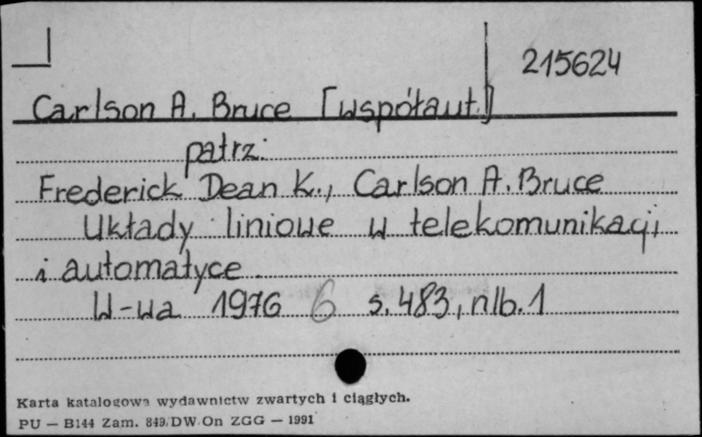 215624
Carlson A. Bruce [współaut.]
patrz:
Frederick Dean K., Carlson A. Bruce
Układy liniowe w telekomunikacji
i automatyce
W-wa 1976 6 s. 483, nlb. 1
Karta katalogowa wydawnictw zwartych i ciągłych.
PU — B144 Zam. 849/DW/On ZGG — 1991